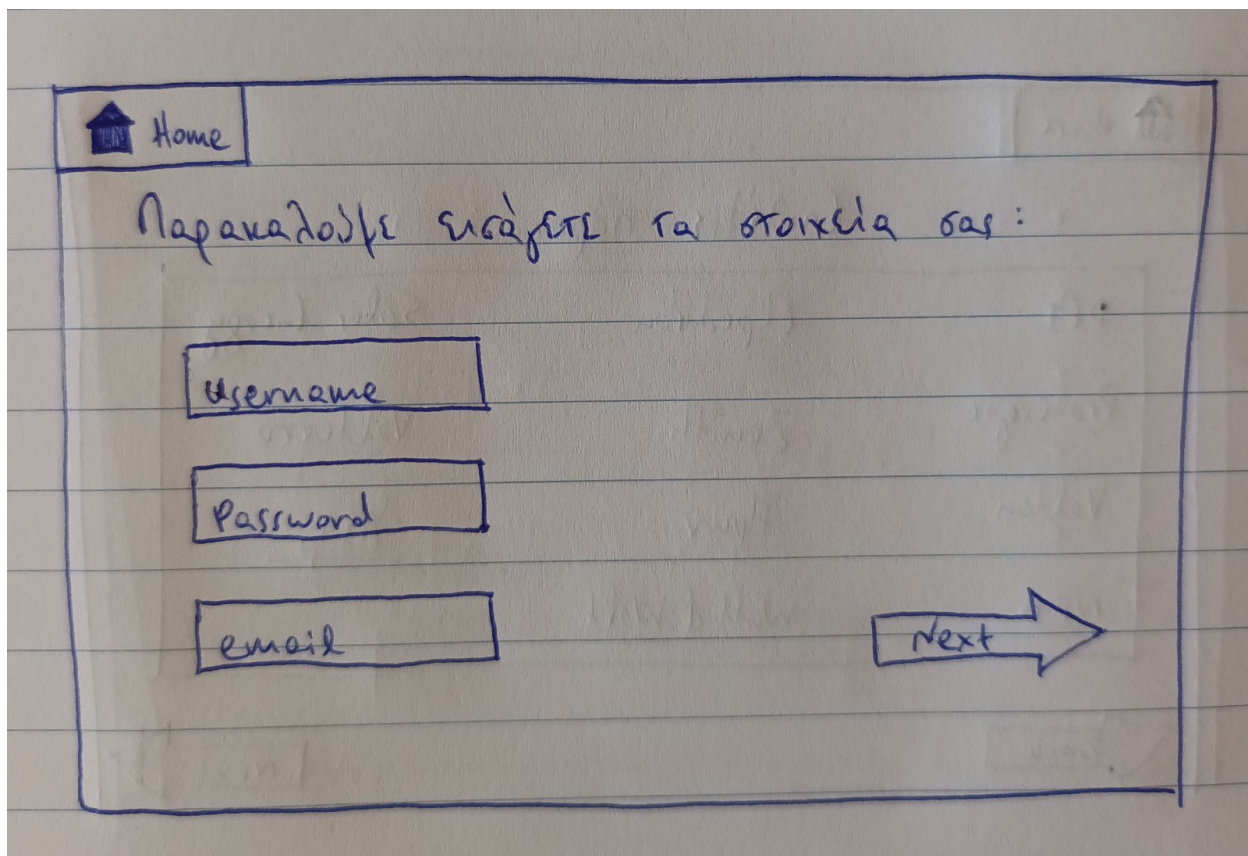 Home
Παρακαλούμε εισάγετε τα στοιχεία σας:
username
Password
email
Next